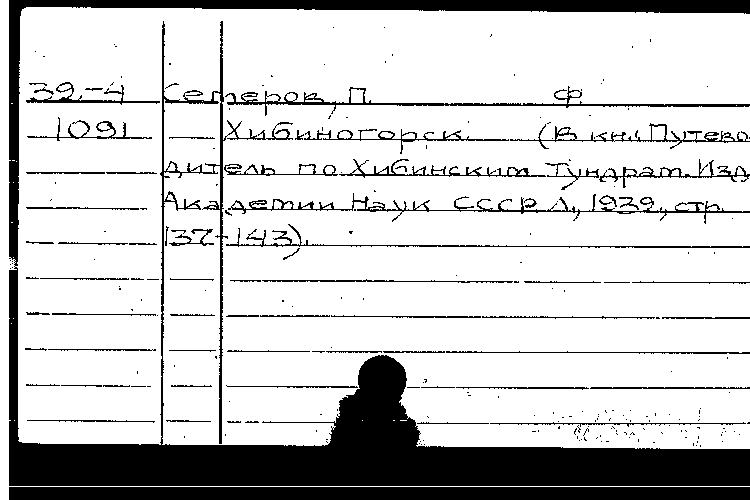 39-4 Семеров, П. Ф
1091 Хибиногорск. (В кн.: Путево-
дитель по Хибинским Тундрам. Изд.
Академии Наук СССР. Л., 1932, стр.
137-143).